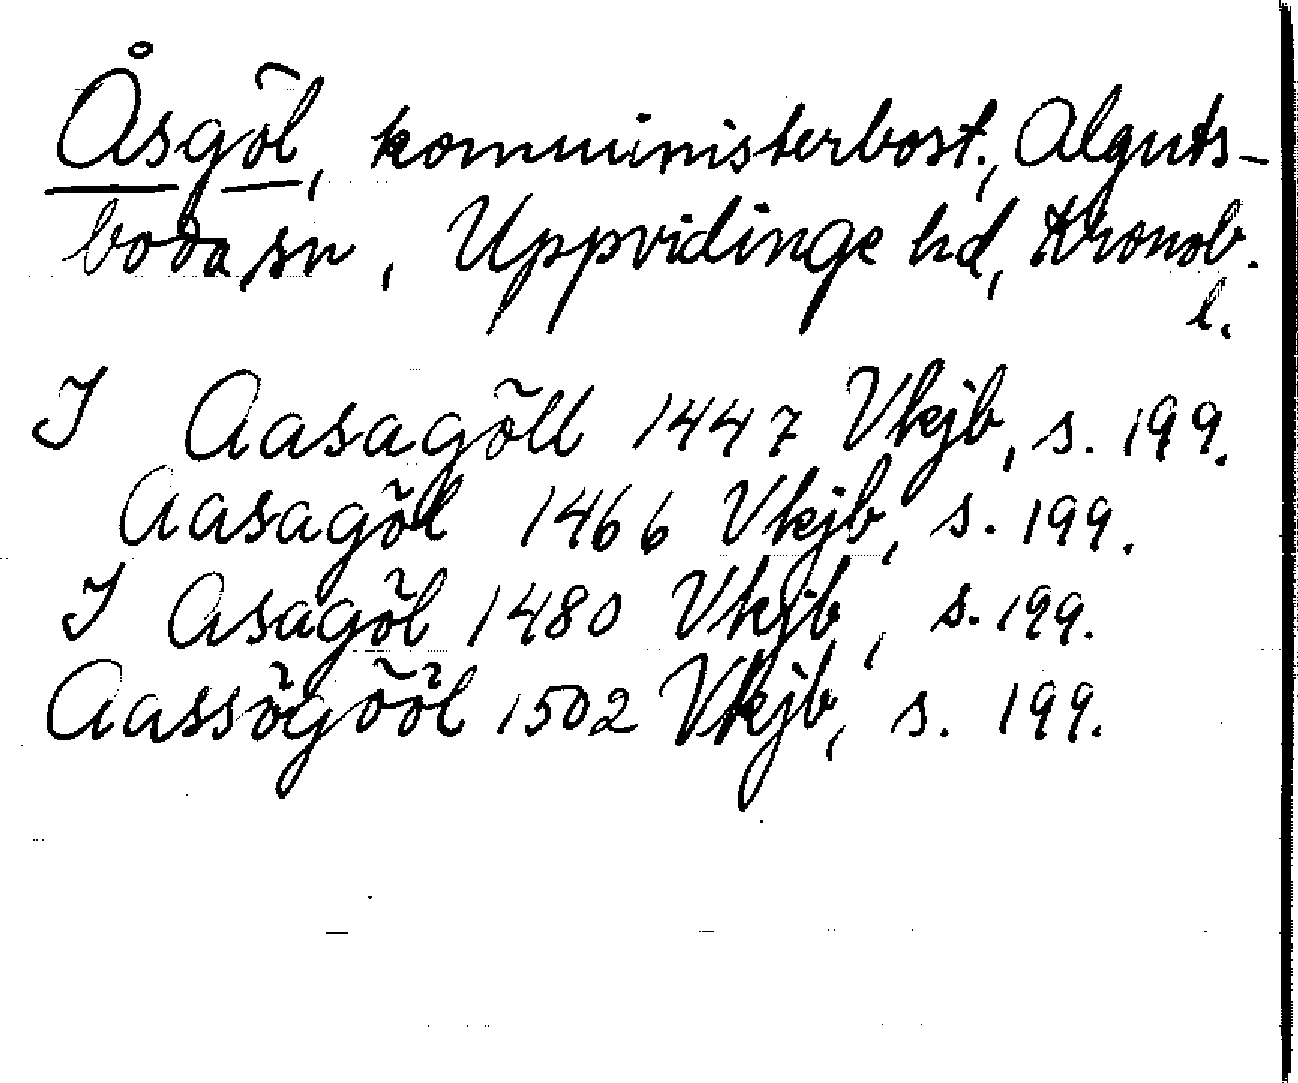 Åsgöl, komministerbost., Alguts-
boda sn, Uppvidinge hd, Kronob.
l.
I Aasagöll 1447 Vkjb, s. 199.
Aasagöl 1466 Vkjb, s. 199.
I Asagöl 1480 Vkjb, s. 199.
Aassögööl 1502 Vkjb, s. 199.